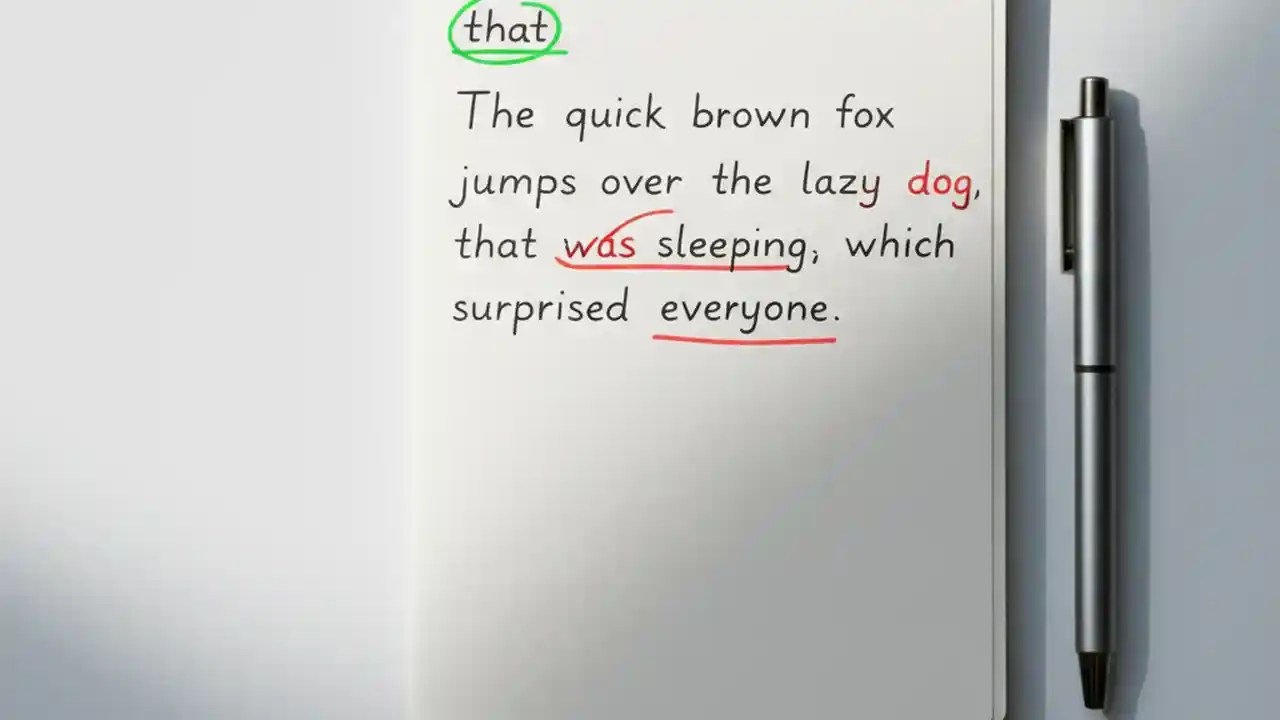 that
The quick brown fox
jumps over the lazy dog,
that was sleeping, which
surprised everyone.